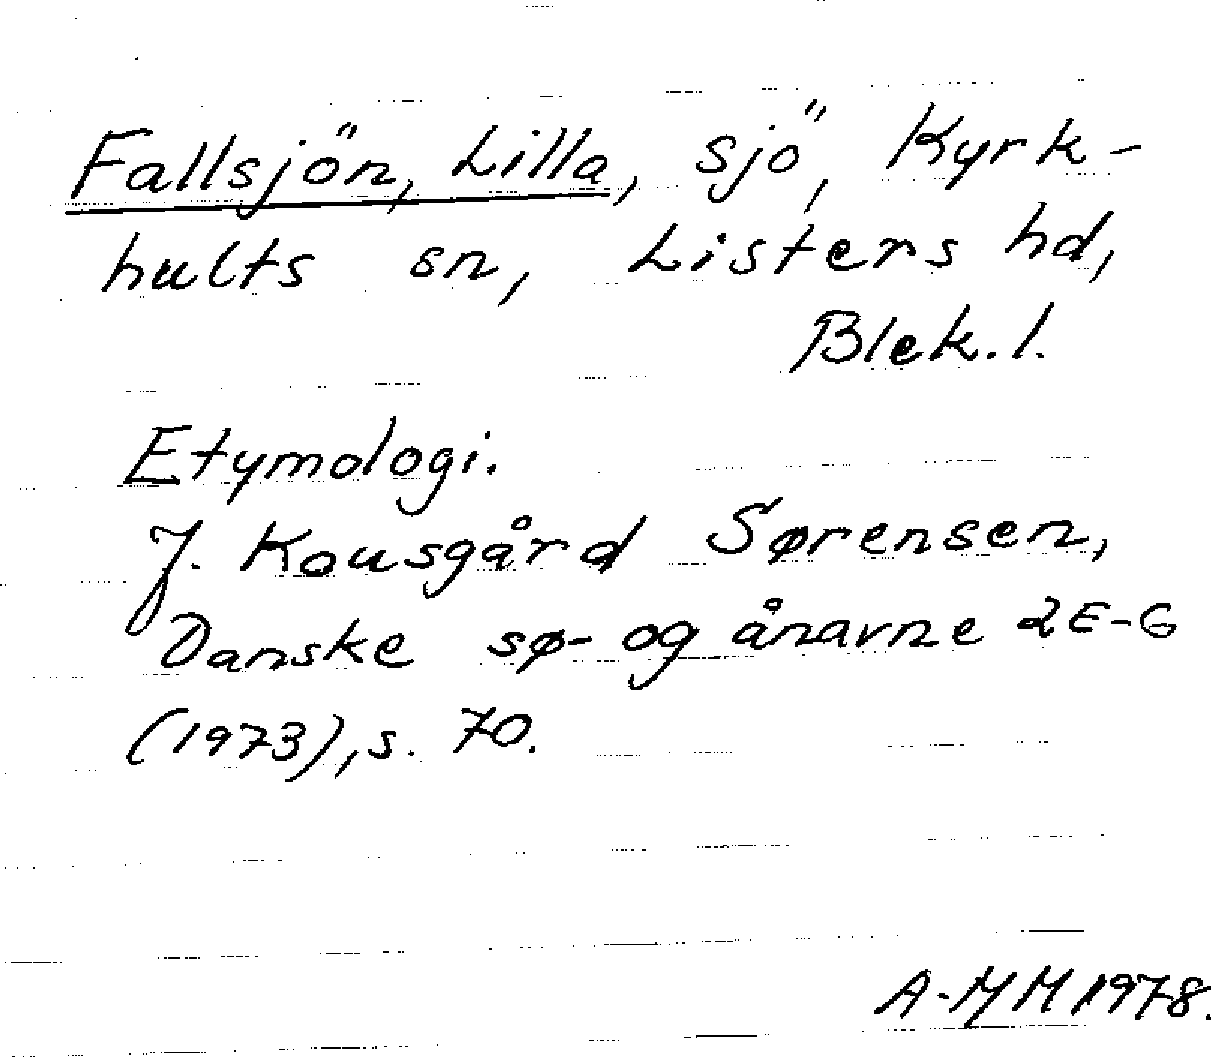 Fallsjön, Lilla, sjö, Kyrk-
hults sn, Listers hd,
Blek. l.
Etymologi.
J. Kousgård Sørensen,
Danske sø- og ånavne 2 E-G
(1973), s. 70.
A-MM 1978.